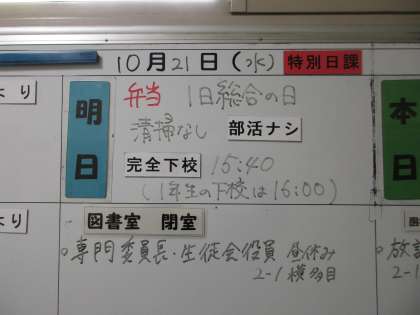 10月21日(水) 特別日課
より
明日
弁当 1日総合の日
清掃なし 部活ナシ
完全下校 15:40
(1年生の下校は16:00)
本日
より
図書室 閉室
○専門委員長・生徒会役員 昼休み
2-1 横多目
○放
2-1